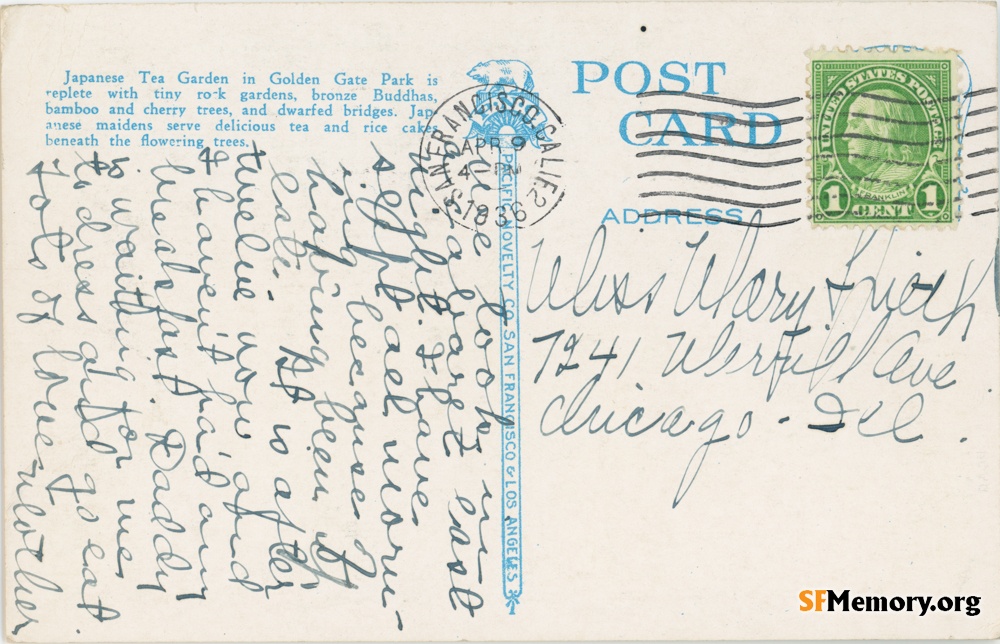 Japanese Tea Garden in Golden Gate Park is
replete with tiny rock gardens, bronze Buddhas,
bamboo and cherry trees, and dwarfed bridges. Jap-
anese maidens serve delicious tea and rice cakes
beneath the flowering trees.
We took in
a cabaret last
night. I have
slept all morn-
ing because of
having been up
late. It is after
twelve now and
I haven't had any
breakfast. Daddy
is waiting for me
to dress and go eat.
Lots of love Mother
PACIFIC NOVELTY CO. SAN FRANCISCO & LOS ANGELES
POST
CARD
ADDRESS
SAN FRANCISCO, CALIF. 2
APR 9
4-PM
1936
UNITED STATES POSTAGE
FRANKLIN
1 CENT 1
Miss Mary
7241 Merrill Ave
Chicago - Ill.
SFMemory.org